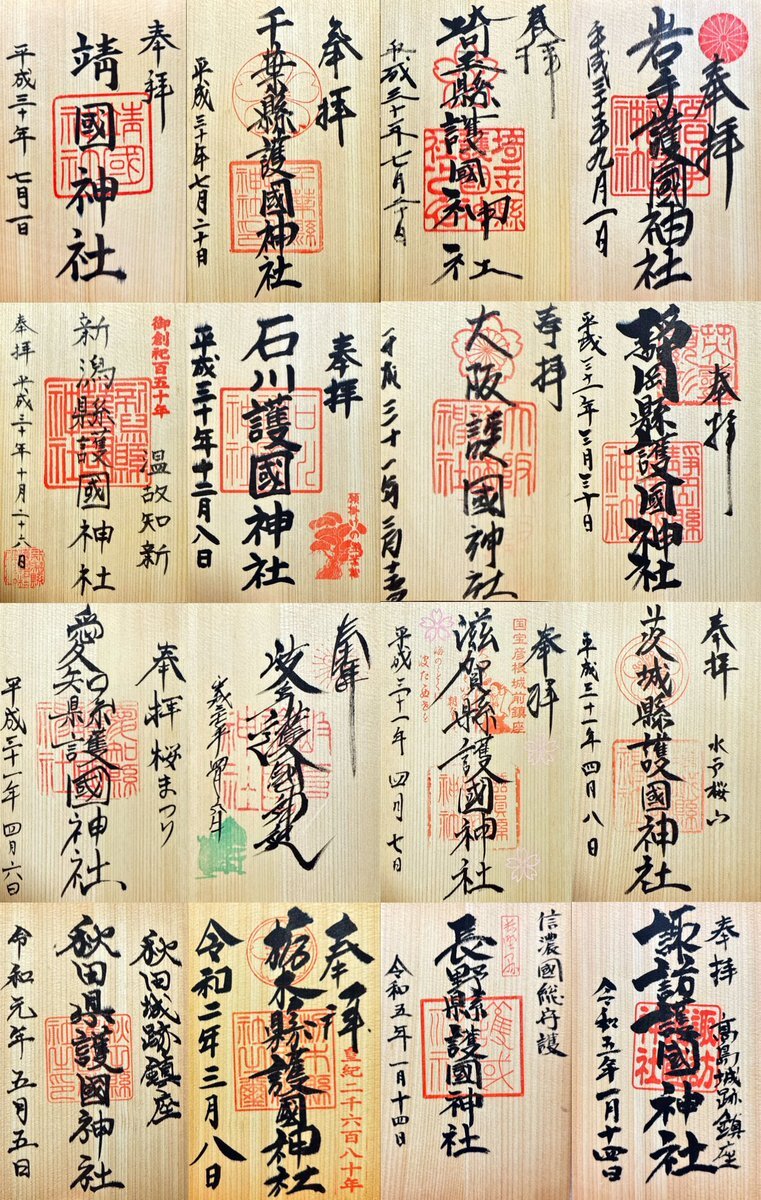 奉拝
靖國神社
平成三十年七月一日
奉拝
千葉縣護國神社
平成三十年七月二十日
奉拝
埼玉縣護國神社
平成三十年七月
奉拝
岩手護國神社
平成三十年九月一日
御創祀百五十年
温故知新
新潟縣護國神社
奉拝 平成三十年十月二十六日
奉拝
石川護國神社
平成三十年十二月八日
願掛けの
奉拝
大阪護國神社
平成三十一年二月
奉拝
静岡縣護國神社
平成三十一年三月三十日
奉拝 桜まつり
愛知縣護國神社
平成三十一年四月六日
奉拝
護國神社
国宝彦根城前鎮座
奉拝
滋賀縣護國神社
平成三十一年四月七日
奉拝 水戸桜山
茨城縣護國神社
平成三十一年四月八日
秋田城跡鎮座
秋田県護國神社
令和元年五月五日
奉拝
皇紀二千六百八十年
栃木縣護國神社
令和二年三月八日
信濃國総守護
長野縣護國神社
令和五年一月十四日
奉拝 高島城跡鎮座
諏訪護國神社
令和五年一月十四日